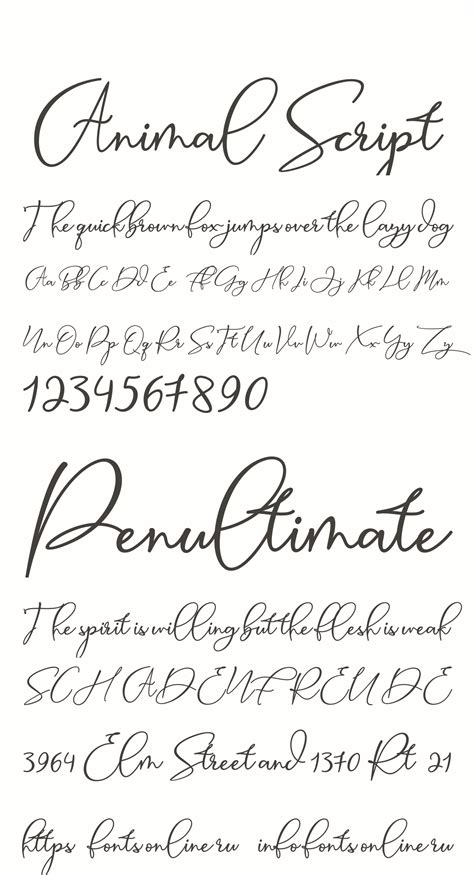 Animal Script
The quick brown fox jumps over the lazy dog
Aa Bb Cc Dd Ee Ff Gg Hh Ii Jj Kk Ll Mm
Nn Oo Pp Qq Rr Ss Tt Uu Vv Ww Xx Yy Zz
1234567890
Penultimate
The spirit is willing but the flesh is weak
SCHADENFREUDE
3964 Elm Street and 1370 Rt 21
https fontsonline ru info fontsonline ru